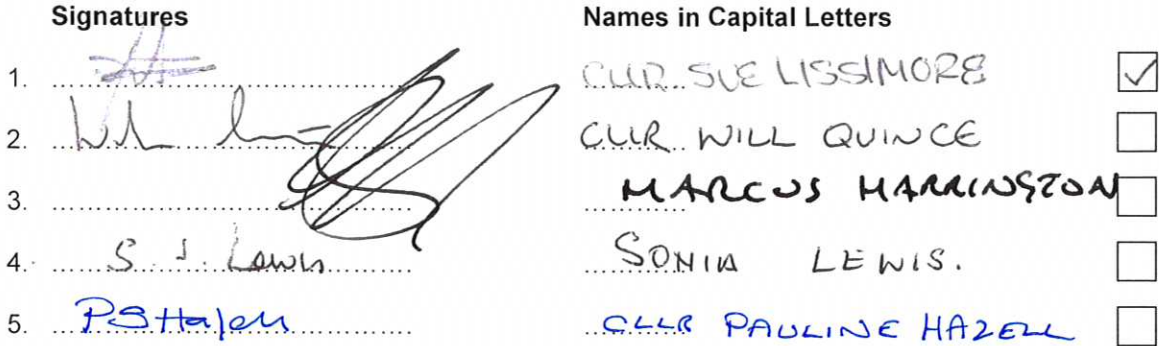 Signatures Names in Capital Letters
1. CLLR SUE LISSIMORE
2. CLLR WILL QUINCE
3. MARCUS HARRINGTON
4. S. J. Lewis SONIA LEWIS.
5. PSHazell CLLR PAULINE HAZELL